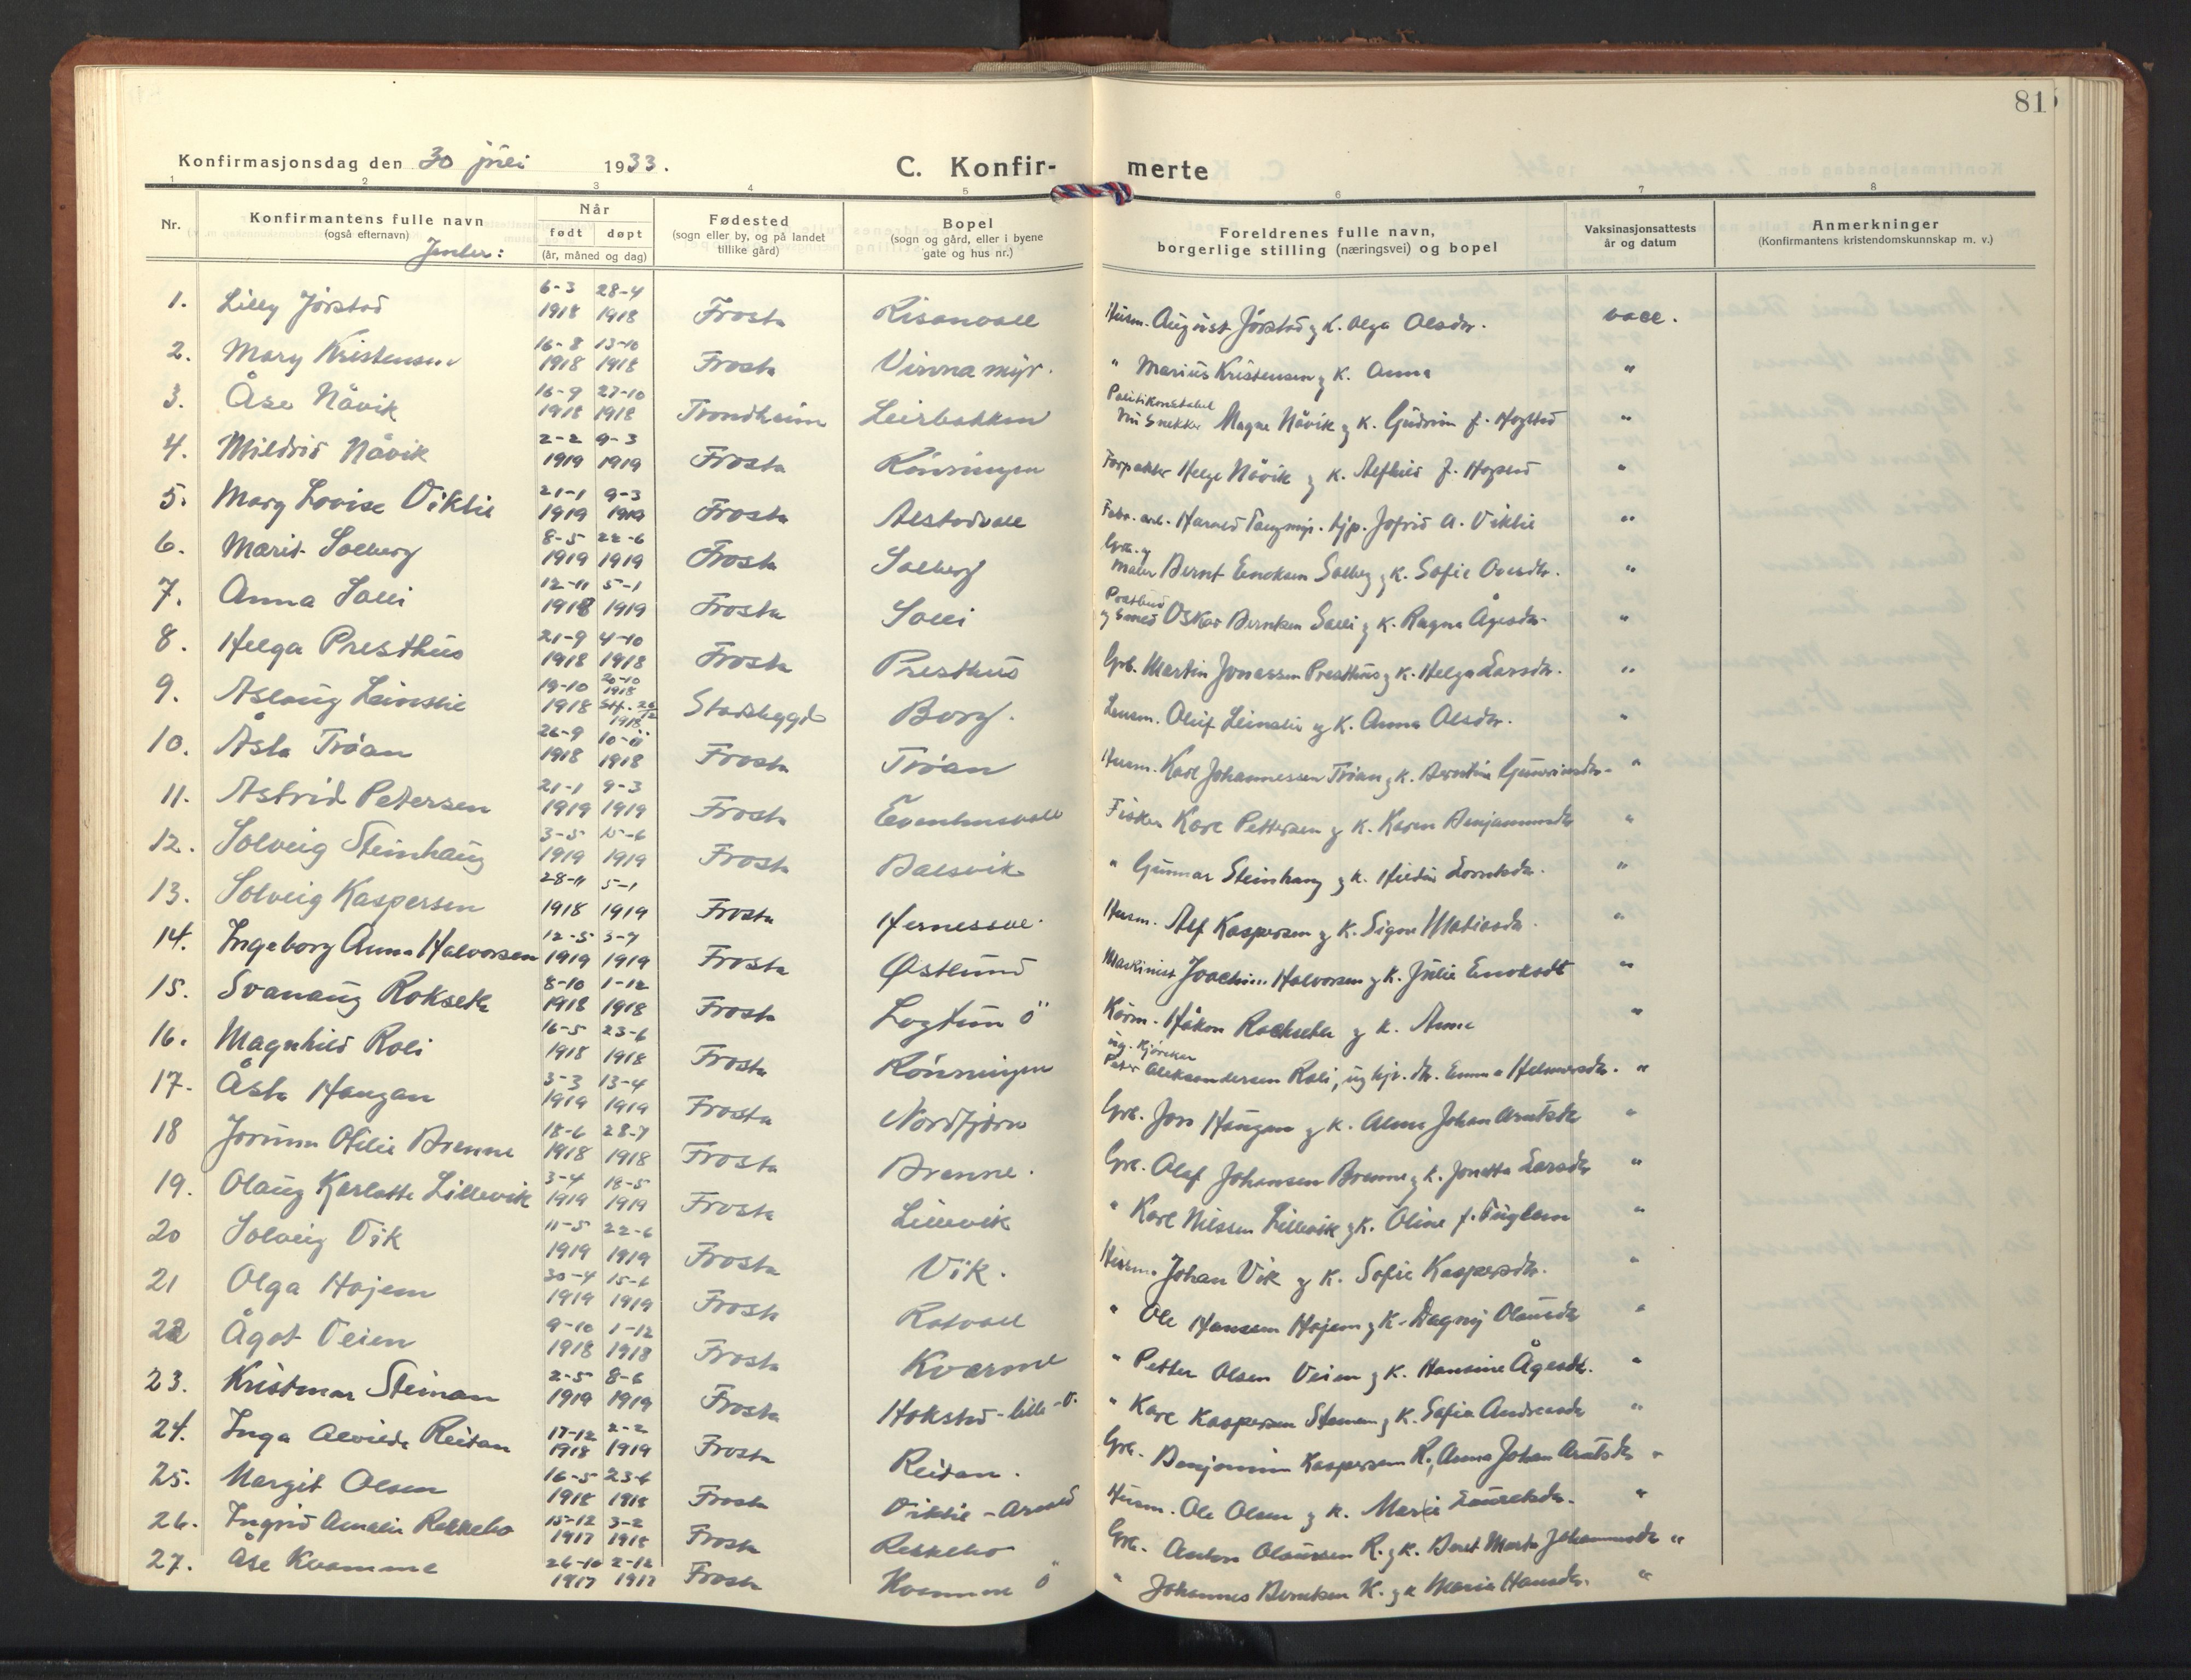 81
Konfirmasjonsdag den 30 juli 1933.
C. Konfir-
merte
1 2 3 4 5 6 7 8
Nr.
Konfirmantens fulle navn
(også efternavn)
Jenter:
Når
født døpt
(år, måned og dag)
Fødested
(sogn eller by, og på landet
tillike gård)
Bopel
(sogn og gård, eller i byene
gate og hus nr.)
Foreldrenes fulle navn,
borgerlige stilling (næringsvei) og bopel
Vaksinasjonsattests
år og datum
Anmerkninger
(Konfirmantens kristendomskunnskap m. v.)
1. Lilly Jørstad 6-3 1918 28-4 1918 Frosta Risanvall Husm. August Jørstad og k. Olga Olsdtr. vacc.
2. Mary Kristensen 16-8 1918 13-10 1918 Frosta Vinnamyr. " Marius Kristensen og k. Anna "
3. Åse Nåvik 16-9 1918 27-10 1918 Trondheim Leirbakken Politikonstabel nu Snekker Magne Nåvik og k. Gudrun f. "
4. Mildrid Nåvik 2-2 1919 9-3 1919 Frosta Rønningen Forpakter Helge Nåvik og k. Alfhild f. "
5. Mary Lovise Viklie 21-1 1919 9-3 1919 Frosta Alstadvall Fabr. arb. Harald Tangmyr. hjp. Jofrid A. Viklie "
6. Marit Solberg 8-5 1919 22-6 1919 Frosta Solberg Grb. og Maler Bernt Solberg og k. Sofie "
7. Anna Salli 12-11 1918 5-1 1919 Frosta Salli Postbud og Smed Oskar Berntsen Salli og k. Ragna Ågesdtr. "
8. Helga Presthus 21-9 1918 4-10 1918 Frosta Presthus Grb. Martin Jonassen Presthus og k. Helga Larsdtr. "
9. Aslaug Leinslie 19-10 1918 20-10 1918 Stf. 26/12 1918 Stadsbygd Borg. Lensm. Oluf Leinslie og k. Anna Olsdtr. "
10. Åsta Trøan 26-9 1918 10-11 1918 Frosta Trøan Husm. Karl Johannessen Trøan og k. "
11. Astrid Petersen 21-1 1919 9-3 1919 Frosta Evenhusvall Fisker Karl Pettersen og k. Karen Benjaminsdtr "
12. Solveig Steinhaug 3-5 1919 15-6 1919 Frosta Balsvik " Gunnar Steinhaug og k. "
13. Solveig Kaspersen 28-11 1918 5-1 1919 Frosta Hernesvoll. Husm. Alf Kaspersen og k. Signe Matiasdtr. "
14. Ingeborg Anna Halvorsen 12-5 1919 3-7 1919 Frosta Østlund Maskinist Joachim Halvorsen og k. Julie "
15. Svanaug Rokseth 8-10 1918 1-12 1918 Frosta Logtun ö Håkon og k. Anna "
16. Magnhild Roli 16-5 1918 23-6 1918 Frosta Rønningen ug. Kjøreker Peter Aleksandersen Roli, ug hjp. dtr. Emma Helmersdtr. "
17. Åsta Haugan 3-3 1919 13-4 1919 Frosta Nordfjørn Grb. Jon Haugan og k. Alma Johan Arntsdtr "
18 Jorunn Otelie Brenne 18-6 1918 28-7 1918 Frosta Brenne. Grb. Olaf Johansen Brenne og k. Jonetta Larsdtr "
19. Olaug Karlotte Lillevik 3-4 1919 18-5 1919 Frosta Lillevik " Karl Nilssen Lillevik og k. Oline f. Fuglem "
20 Solveig Vik 11-5 1919 22-6 1919 Frosta Vik. Husm. Johan Vik og k. Sofie Kaspersdtr. "
21 Olga Hojem 30-4 1919 15-6 1919 Frosta Ratvall " Ole Hansen Hojem og k. Dagny Olausdtr "
22 Ågot Veien 9-10 1918 1-12 1918 Frosta Kvarme " Petter Olsen Veien og k. Hansine Ågesdtr. "
23. Kristmar Steinan 2-5 1919 8-6 1919 Frosta Hokstad-lille-ö. " Karl Kaspersen Steinan og k. Sofia Andreasdtr "
24. Inga Alvilde Reitan 17-12 1918 2-2 1919 Frosta Reitan. Grb. Benjamin Kaspersen R., Anna Johan Arntsdtr "
25. Margit Olsen 16-5 1918 23-6 1918 Frosta Viklie - Husm. Ole Olsen og k. Marie Lauretsdtr. "
26. Ingrid Amalie Rekkebo 15-12 1917 3-2 1918 Frosta Rekkebo Grb. Anton Olaussen R. og k. Beret Marta Johannesdtr "
27. Åse Kvamme 26-10 1917 2-12 1917 Frosta Kvamme ö " Johannes Berntsen K. og k. Maria Hansdtr. "